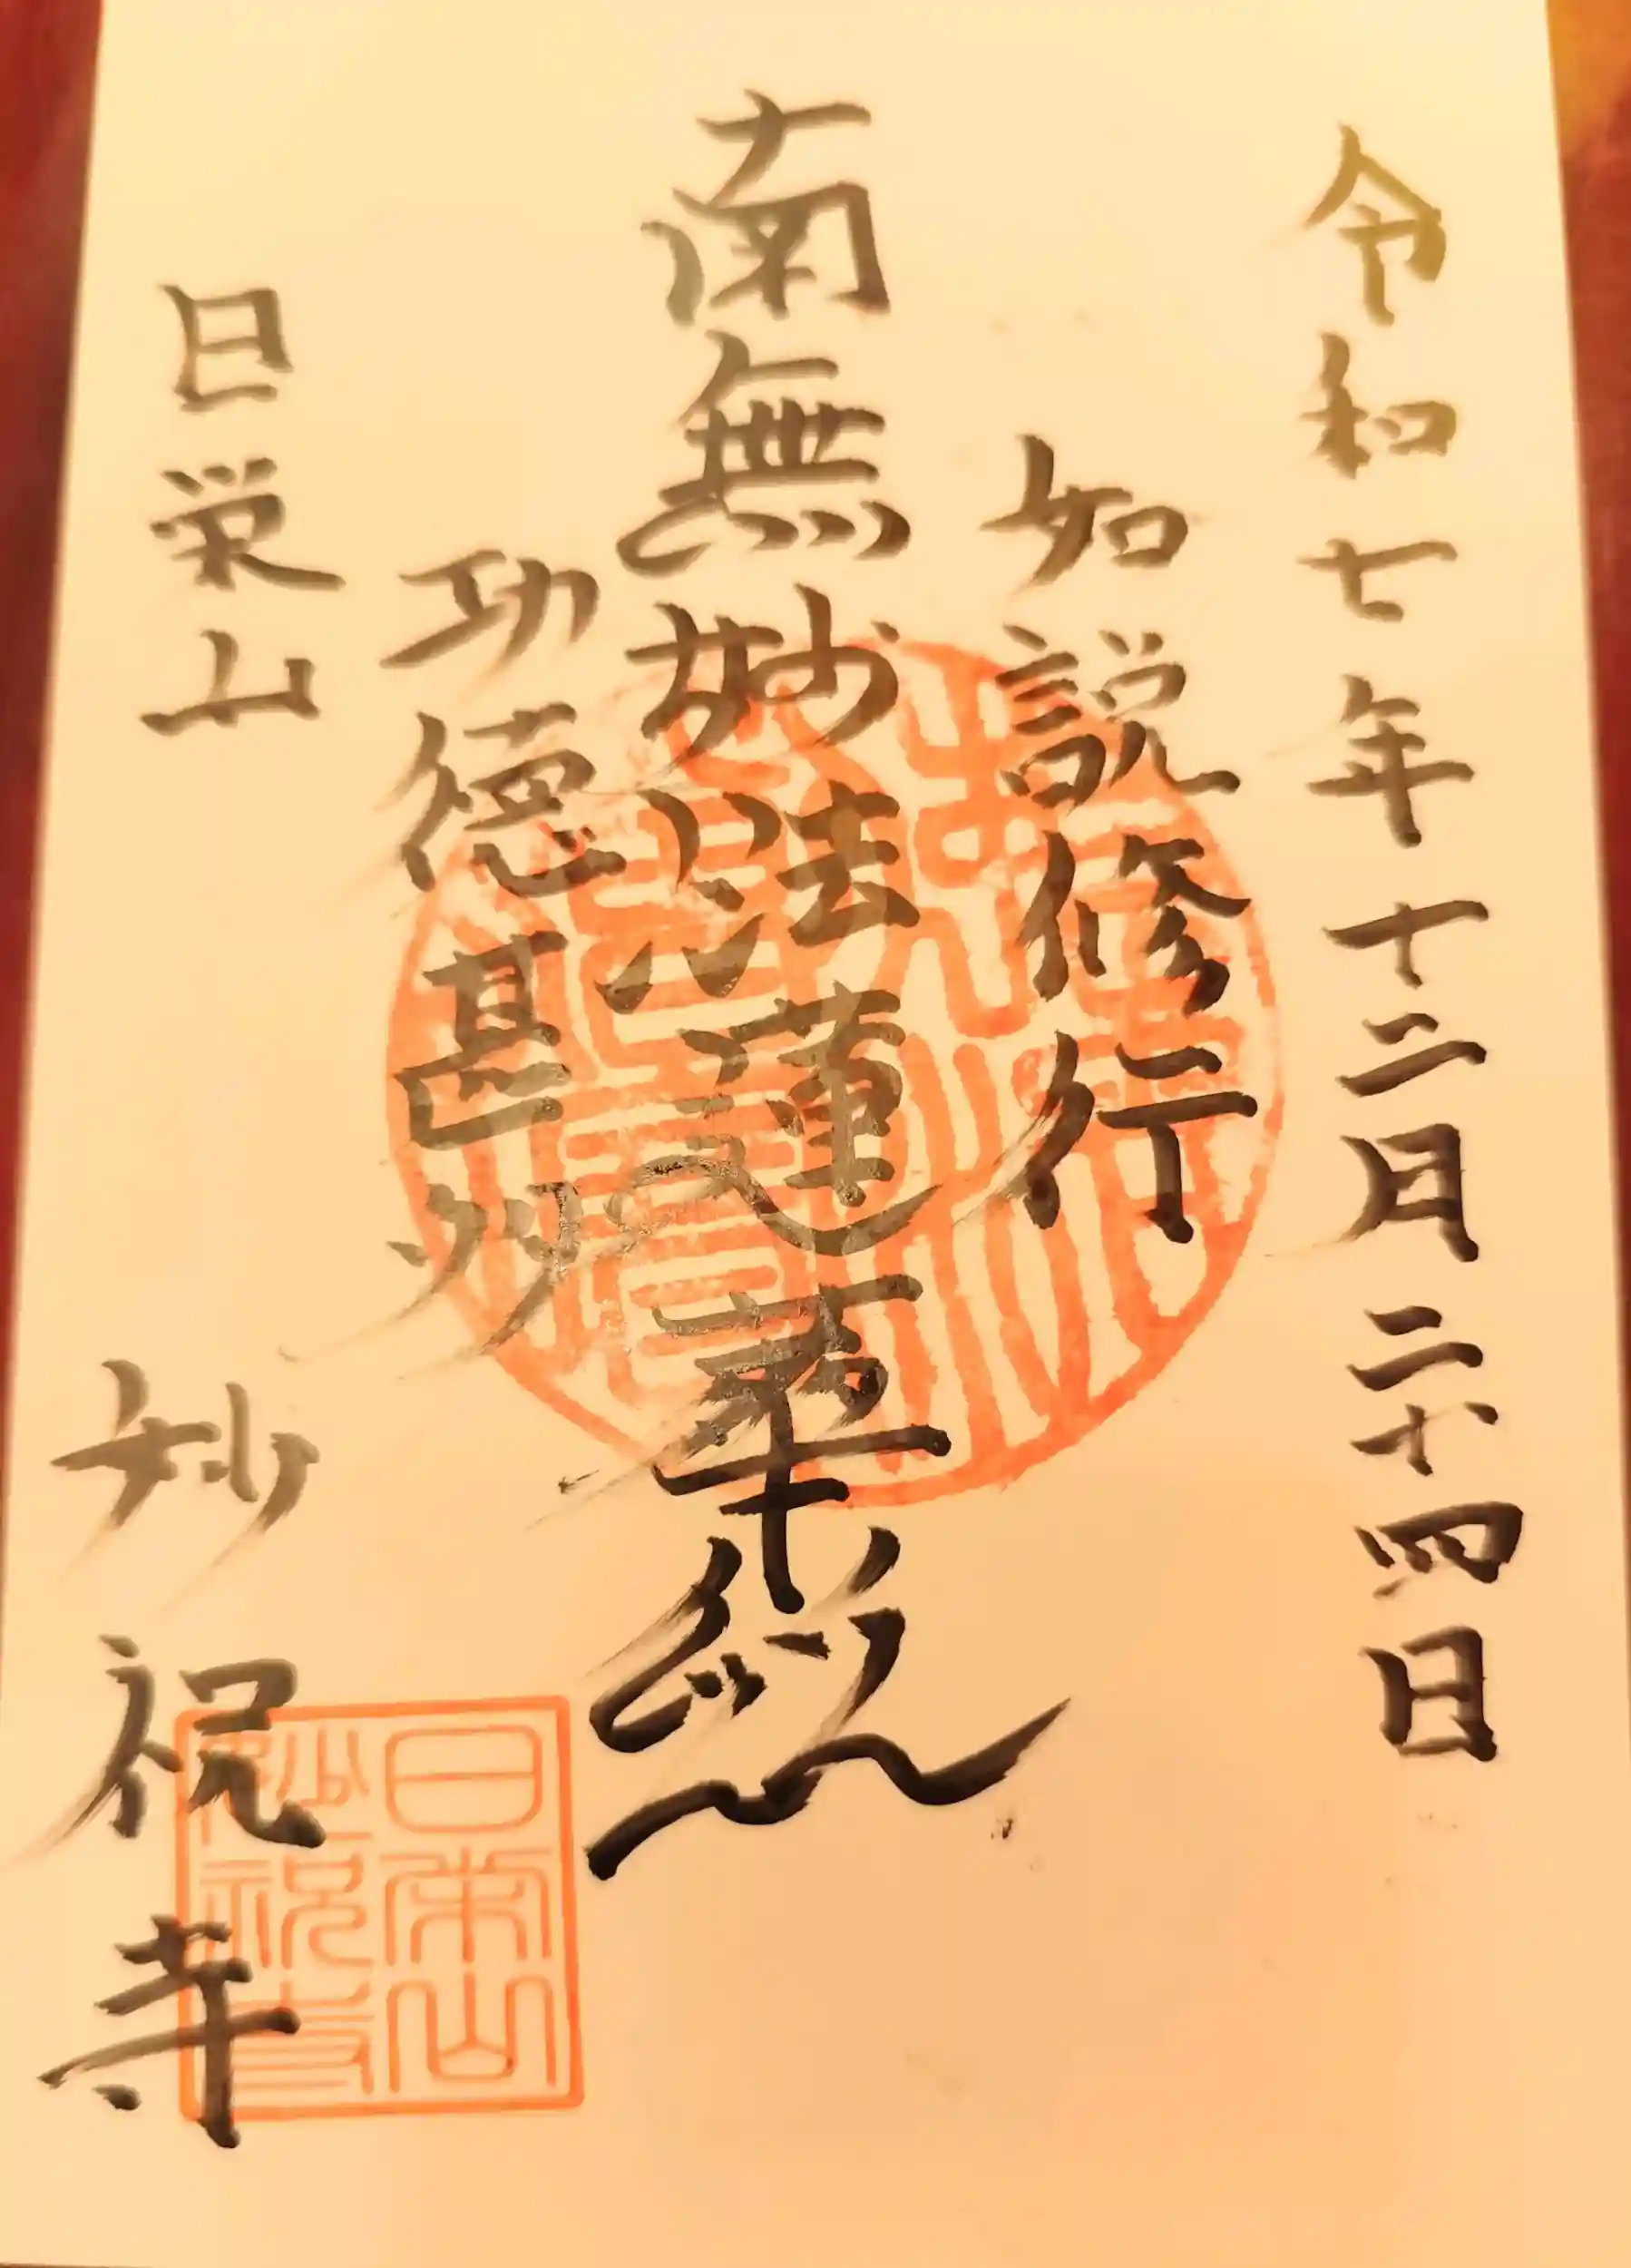 令和七年十二月二十四日
如説修行
南無妙法蓮華経
功徳甚妙
日栄山
妙祝寺
日栄山
妙祝寺